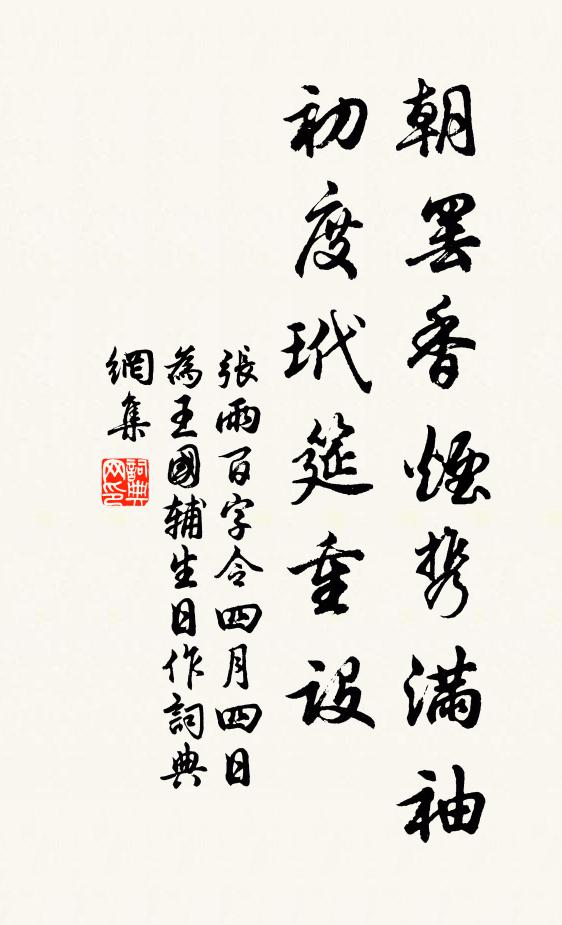 朝罢香煙携滿袖
初度玳筵重設
張雨百字令四月四日
為王國輔生日作詞典
網集
詞典
网印